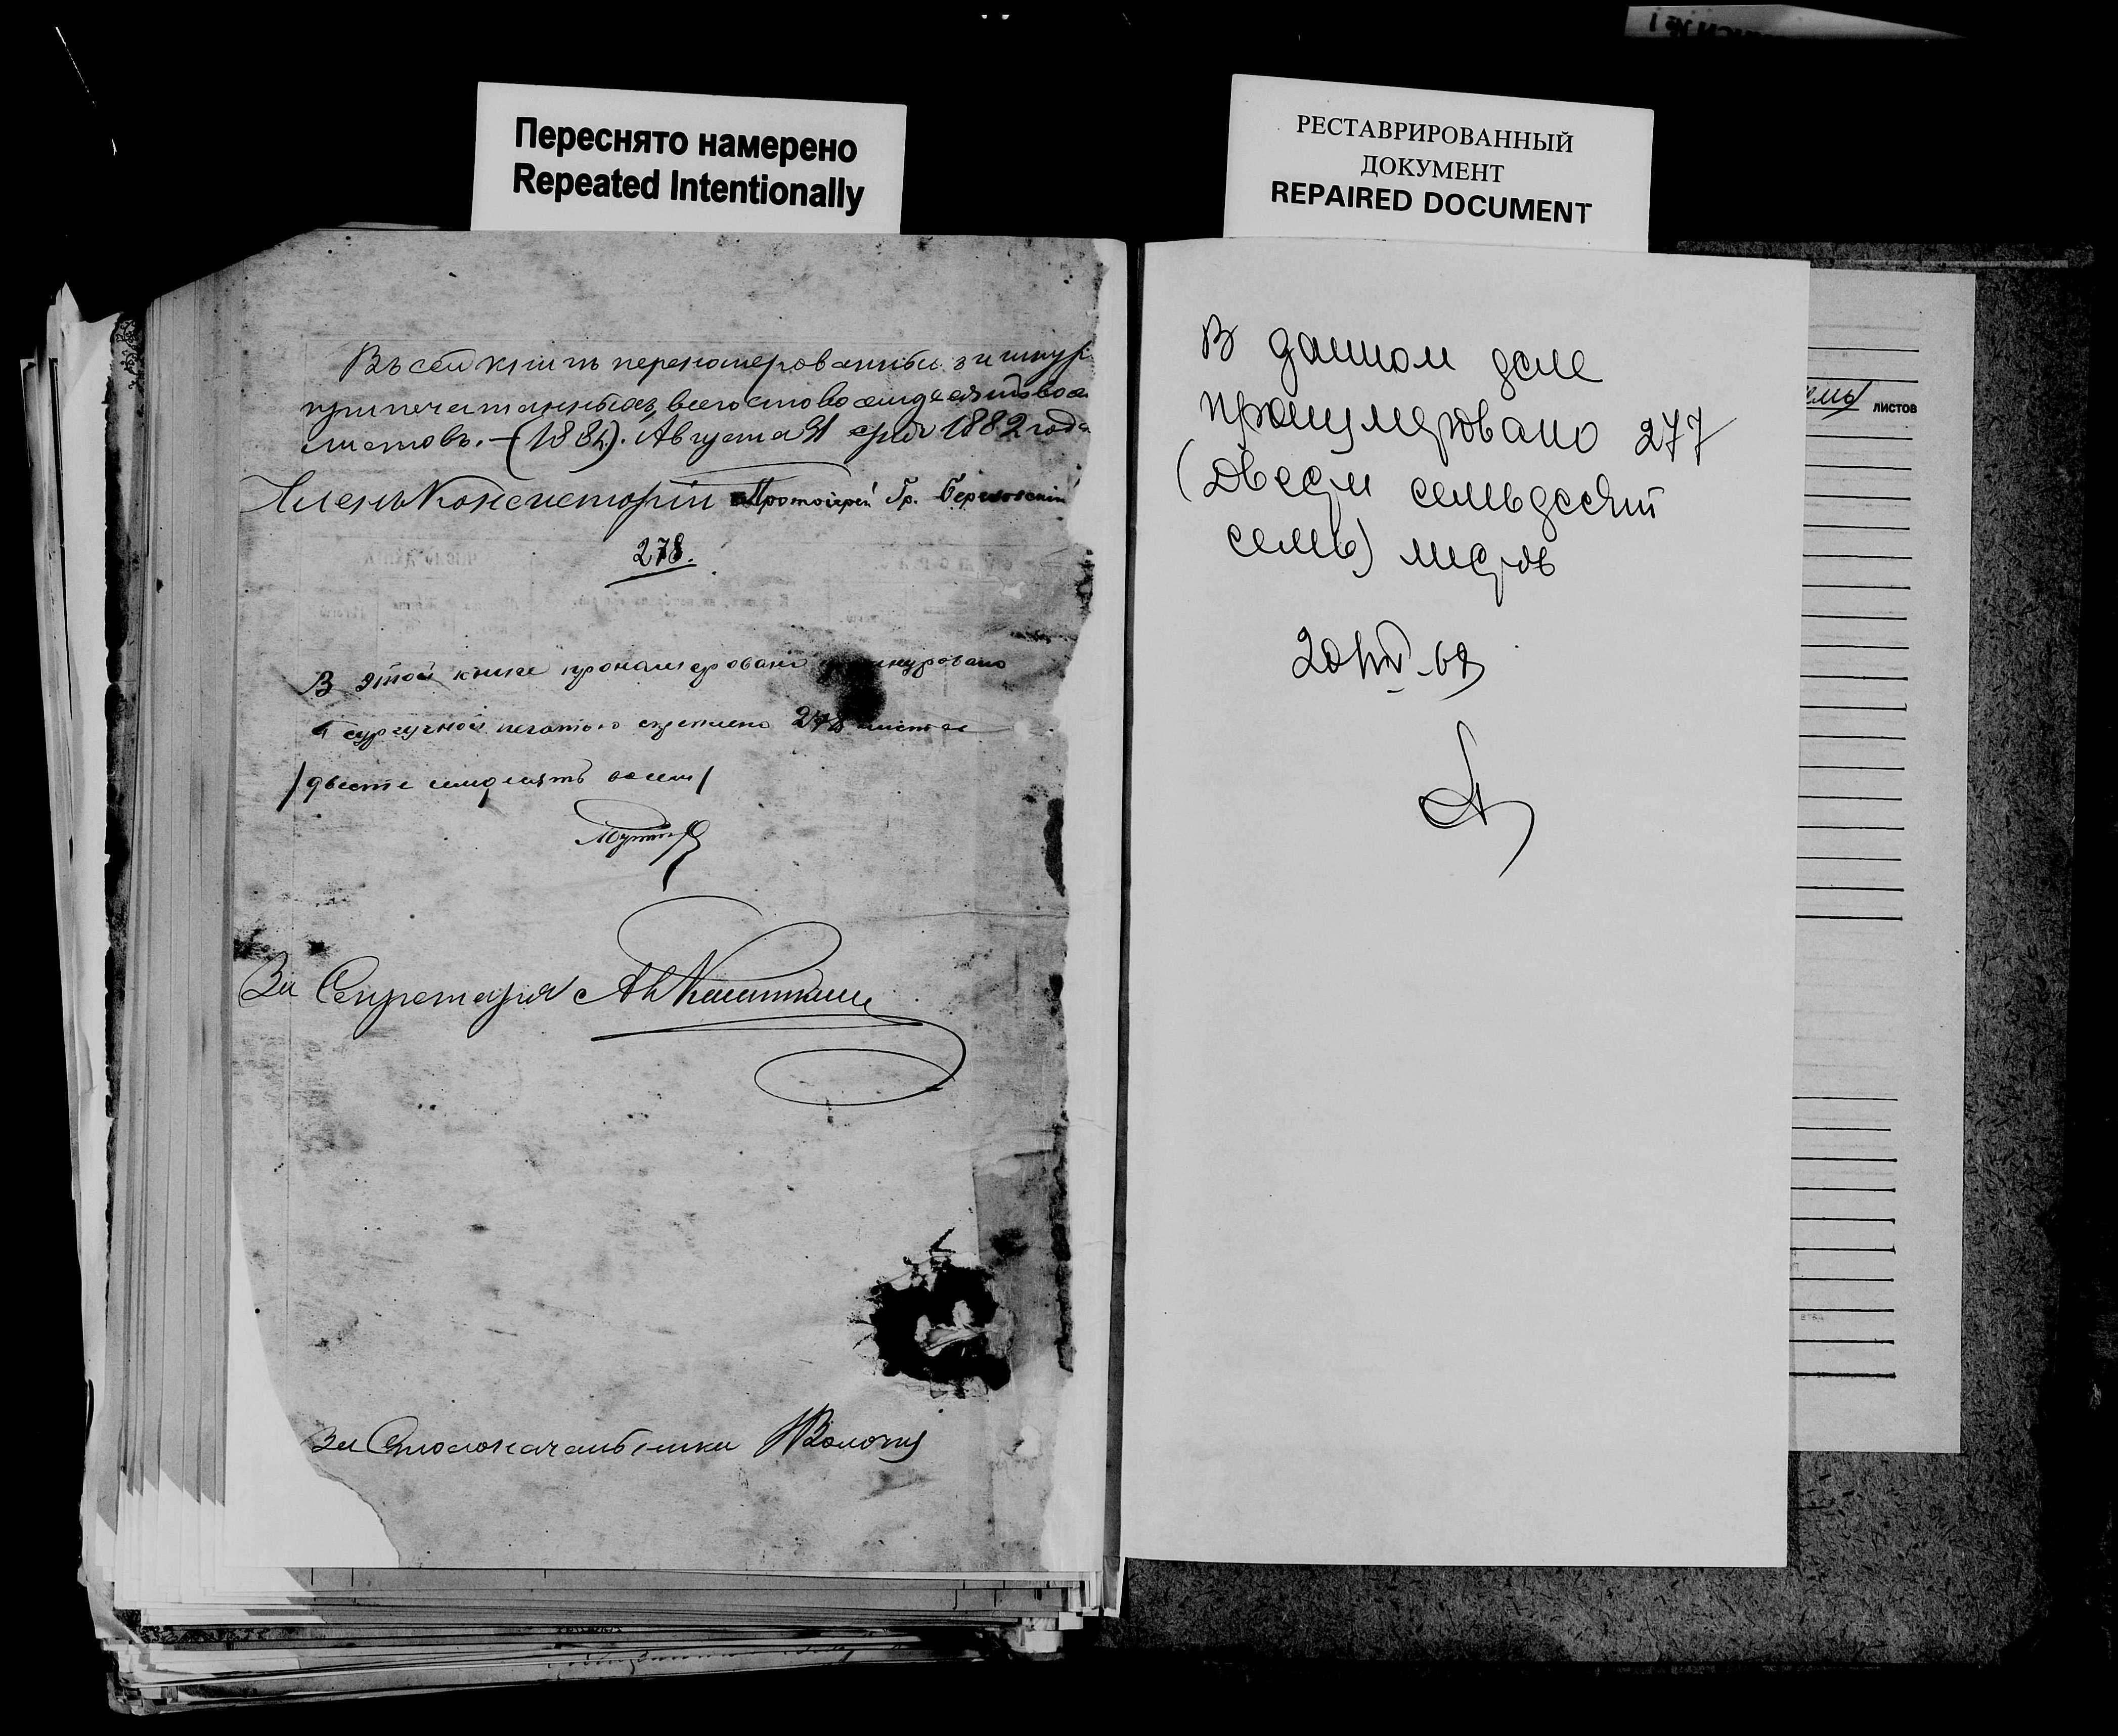 Переснято намерено
Repeated Intentionally
РЕСТАВРИРОВАННЫЙ
ДОКУМЕНТ
REPAIRED DOCUMENT
Въ сей книгѣ переномерованныхъ
припечатанныхъ, всего сто восемдесятъ
листовъ. – (188). Августа 31 дня 1882 года
Членъ Консисторіи Протоіерей Гр.
278.
В этой книге прономеровано
и сургучной печатью скреплено 278 листов
/двести семдесятъ восем/
За Секретаря
За Столоначальника
В данном деле
пронумеровано 277
(Двести семьдесят
семь) листов
листов